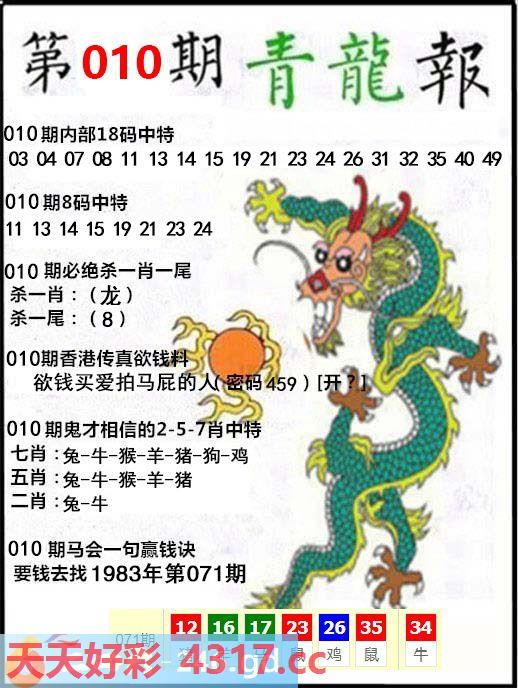 第010期青龍報
010期内部18码中特
03 04 07 08 11 13 14 15 19 21 23 24 26 31 32 35 40 49
010期8码中特
11 13 14 15 19 21 23 24
010期必绝杀一肖一尾
杀一肖：（龙）
杀一尾：（8）
010期香港传真欲钱料
欲钱买爱拍马屁的人（密码459）[开？]
010期鬼才相信的2-5-7肖中特
七肖：兔-牛-猴-羊-猪-狗-鸡
五肖：兔-牛-猴-羊-猪
二肖：兔-牛
010期马会一句赢钱诀
要钱去找1983年第071期
071期 12 16 17 23 26 35 34
鼠 鸡 鼠 牛
天天好彩 4317.cc